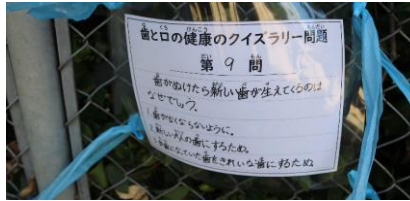 歯と口の健康のクイズラリー問題
第9問
歯がぬけたら新しい歯が生えてくるのは
なぜでしょう。
1.歯がなくならないように。
2.新しい大人の歯にするため。
3.虫歯になっていた歯をきれいな歯にするため